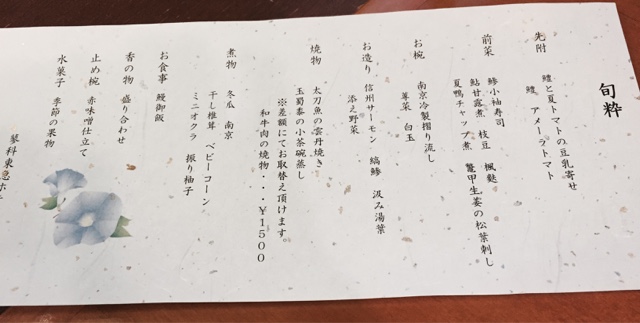 旬粋
先附
鱧と夏トマトの豆乳寄せ
鱧 アメーラトマト
前菜
鯵小袖寿司
鮎甘露煮 枝豆 楓麩 鼈甲生姜の松葉刺し
夏鴨チャップ煮
お椀
南京冷製摺り流し
蓴菜 白玉
お造り
信州サーモン 縞鯵 汲み湯葉
添え野菜
焼物
太刀魚の雲丹焼き
玉蜀黍の小茶碗蒸し
※差額にてお取替え頂けます。
和牛肉の焼物・・・¥1500
煮物
冬瓜 南京
干し椎茸 ベビーコーン
ミニオクラ 振り柚子
お食事
鰻御飯
香の物
盛り合わせ
止め椀
赤味噌仕立て
水菓子
季節の果物
蓼科東急ホテ